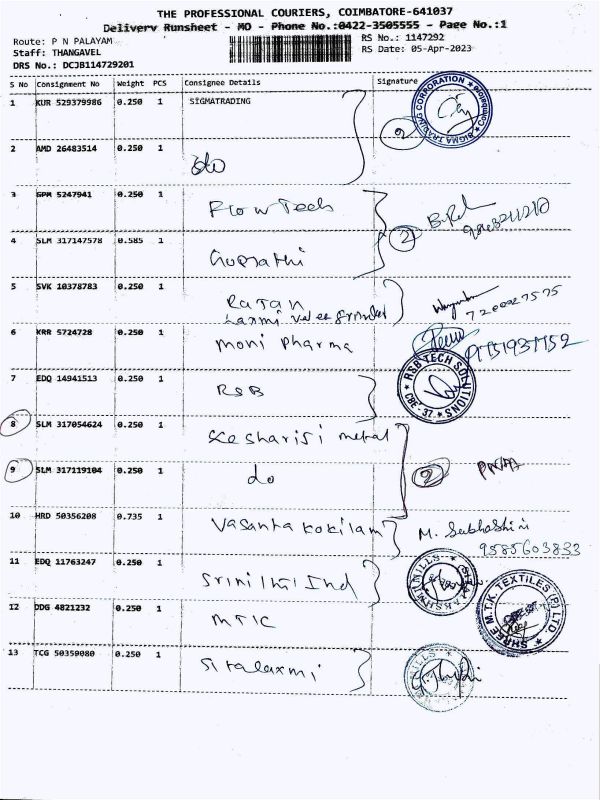 THE PROFESSIONAL COURIERS, COIMBATORE-641037
Delivery Runsheet - MO - Phone No.:0422-3505555 - Page No.:1
Route: P N PALAYAM
RS No.: 1147292
Staff: THANGAVEL
RS Date: 05-Apr-2023
DRS No.: DCJB114729201
S No Consignment No Weight PCS Consignee Details Signature
1 KUR 529379986 0.250 1 SIGMATRADING
SIGMA TRADING CORPORATION
2
2 AMD 26483514 0.250 1 do
3 GPM 5247941 0.250 1 Flowtech
2
4 SLM 317147578 0.585 1
5 SVK 10378783 0.250 1 Rajan
Laxmi
7200927575
6 KRR 5724728 0.250 1 Moni pharma
7 EDQ 14941513 0.250 1 RSB
RSB TECH SOLUTIONS
CBE-37
8 SLM 317054624 0.250 1 metal
9 SLM 317119104 0.250 1 do
2
10 HRD 50356208 0.735 1 Vasanta kokilam
M. Subhashini
9585603833
11 EDQ 11763247 0.250 1 Ind
12 DDG 4821232 0.250 1 MTK
SHREE M.T.K. TEXTILES (P) LTD.
13 TCG 50359080 0.250 1 Sitalaxmi
MILLS